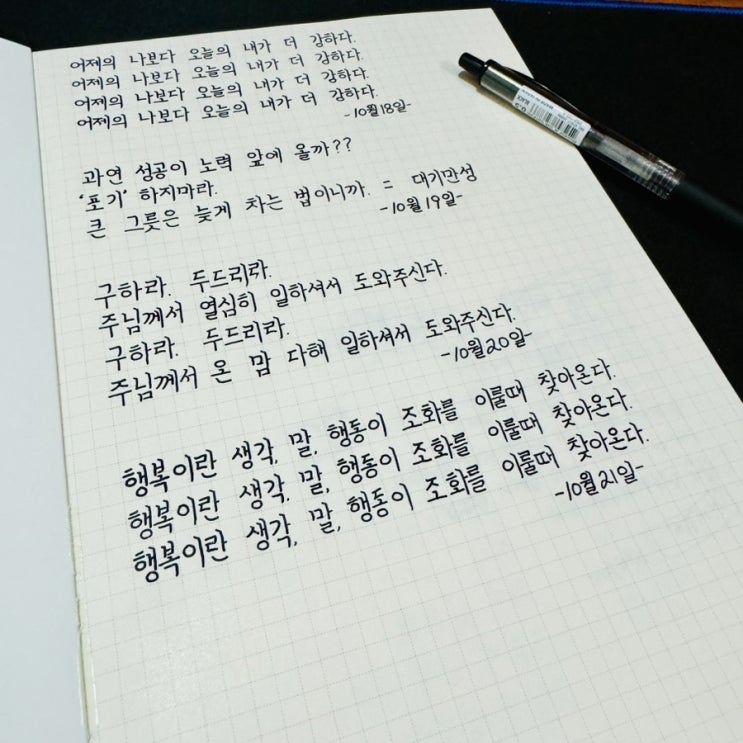 어제의 나보다 오늘의 내가 더 강하다.
어제의 나보다 오늘의 내가 더 강하다.
어제의 나보다 오늘의 내가 더 강하다.
어제의 나보다 오늘의 내가 더 강하다.
-10월18일-
과연 성공이 노력 앞에 올까??
'포기' 하지마라.
큰 그릇은 늦게 차는 법이니까. = 대기만성
-10월19일-
구하라. 두드리라.
주님께서 열심히 일하셔서 도와주신다.
구하라. 두드리라.
주님께서 온 맘 다해 일하셔서 도와주신다.
-10월20일-
행복이란 생각, 말, 행동이 조화를 이룰때 찾아온다.
행복이란 생각, 말, 행동이 조화를 이룰때 찾아온다.
행복이란 생각, 말, 행동이 조화를 이룰때 찾아온다.
-10월21일-